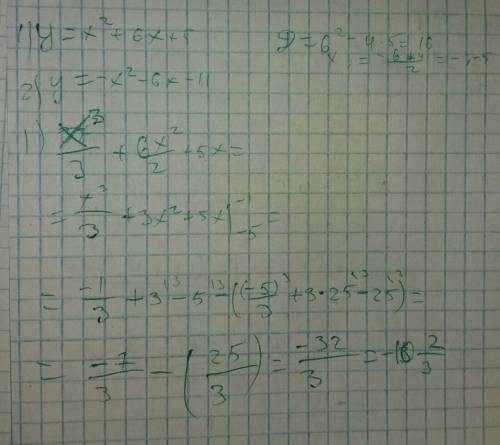 1) y = x² + 6x + 5
D = 6² - 4·5 = 16
x₁ = -6±4/2 = -1, -5
2) y = -x² - 6x - 11
1) x³/3 + 6x²/2 + 5x =
= x³/3 + 3x² + 5x |₋₅⁻¹ =
= -1/3 + 3 - 5 - ((-5)³/3 + 3·25 - 25) =
= -7/3 - (25/3) = -32/3 = -10 2/3